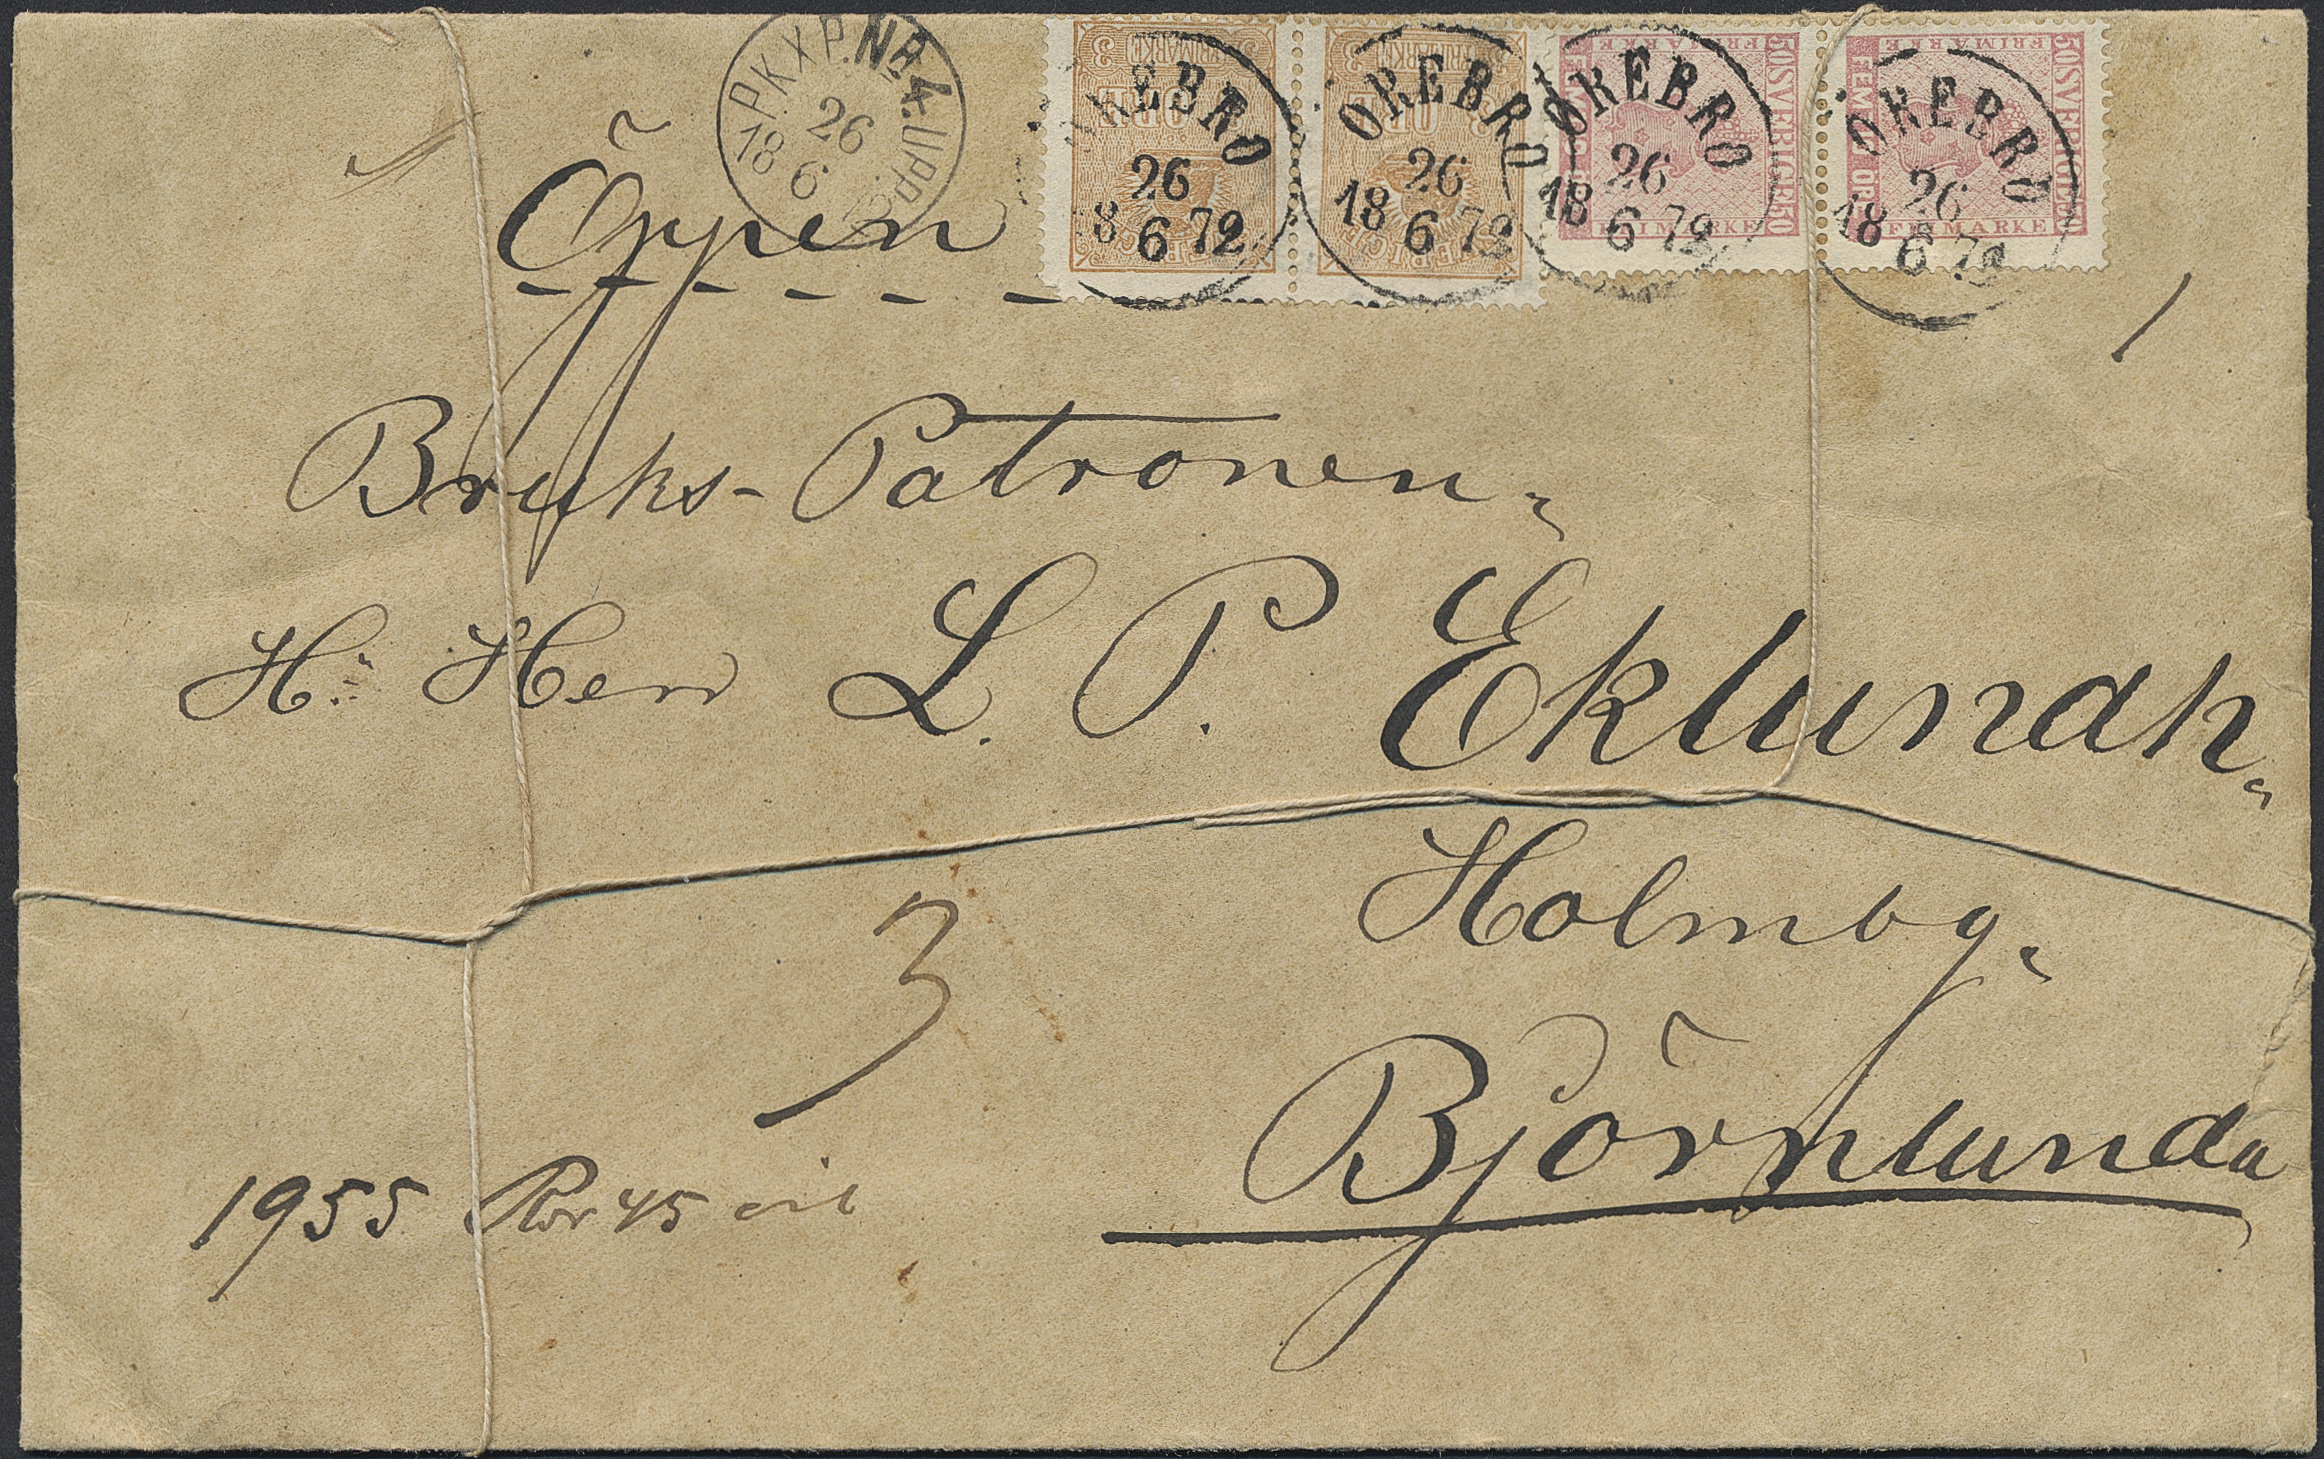 P.K.X.P. Nr 4. Upp.
26
18 6
ÖREBRO
26
18 6 72
ÖREBRO
26
18 6 72
ÖREBRO
26
18 6 72
ÖREBRO
26
18 6 72
3 FRIMÄRKE 3
ÖRE
SVERIGE
3 FRIMÄRKE 3
ÖRE
SVERIGE
FRIMÄRKE
50 SVERIGE 50
FRIMÄRKE
FRIMÄRKE
50 SVERIGE 50
FEMTIO ÖRE
FRIMÄRKE
Öppen
Bruks-Patronen,
H. Herr L. P. Eklundh,
Holmby,
Björnlunda
3
1955 Por 45